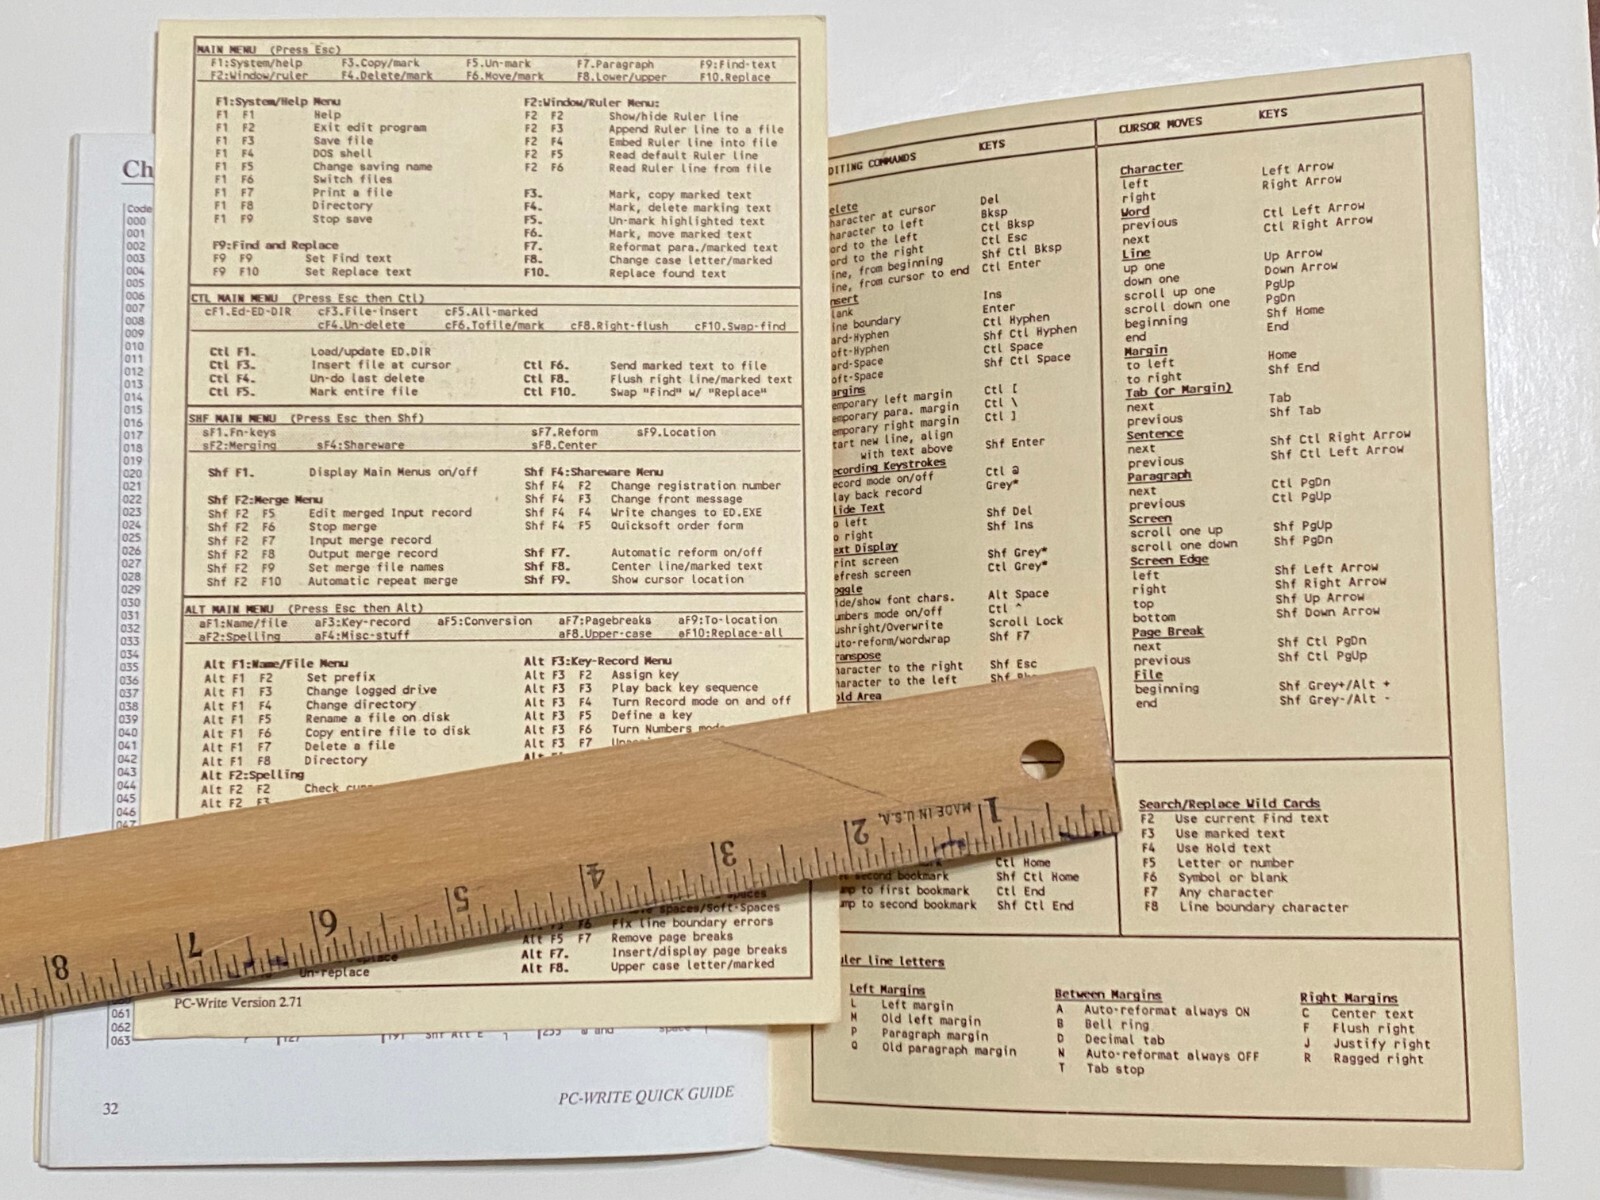 MAIN MENU (Press Esc)
F1:System/help F3.Copy/mark F5.Un-mark F7.Paragraph F9:Find-text
F2:Window/ruler F4.Delete/mark F6.Move/mark F8.Lower/upper F10.Replace
F1:System/Help Menu
F1 F1 Help
F1 F2 Exit edit program
F1 F3 Save file
F1 F4 DOS shell
F1 F5 Change saving name
F1 F6 Switch files
F1 F7 Print a file
F1 F8 Directory
F1 F9 Stop save
F9:Find and Replace
F9 F9 Set Find text
F9 F10 Set Replace text
F2:Window/Ruler Menu:
F2 F2 Show/hide Ruler line
F2 F3 Append Ruler line to a file
F2 F4 Embed Ruler line into file
F2 F5 Read default Ruler line
F2 F6 Read Ruler line from file
F3. Mark, copy marked text
F4. Mark, delete marking text
F5. Un-mark highlighted text
F6. Mark, move marked text
F7. Reformat para./marked text
F8. Change case letter/marked
F10. Replace found text
CTL MAIN MENU (Press Esc then Ctl)
cF1.Ed-ED-DIR cF3.File-insert cF5.All-marked
cF4.Un-delete cF6.Tofile/mark cF8.Right-flush cF10.Swap-find
Ctl F1. Load/update ED.DIR
Ctl F3. Insert file at cursor
Ctl F4. Un-do last delete
Ctl F5. Mark entire file
Ctl F6. Send marked text to file
Ctl F8. Flush right line/marked text
Ctl F10. Swap "Find" w/ "Replace"
SHF MAIN MENU (Press Esc then Shf)
sF1.Fn-keys sF7.Reform sF9.Location
sF2:Merging sF4:Shareware sF8.Center
Shf F1. Display Main Menus on/off
Shf F2:Merge Menu
Shf F2 F5 Edit merged Input record
Shf F2 F6 Stop merge
Shf F2 F7 Input merge record
Shf F2 F8 Output merge record
Shf F2 F9 Set merge file names
Shf F2 F10 Automatic repeat merge
Shf F4:Shareware Menu
Shf F4 F2 Change registration number
Shf F4 F3 Change front message
Shf F4 F4 Write changes to ED.EXE
Shf F4 F5 Quicksoft order form
Shf F7. Automatic reform on/off
Shf F8. Center line/marked text
Shf F9. Show cursor location
ALT MAIN MENU (Press Esc then Alt)
aF1:Name/file aF3:Key-record aF5:Conversion aF7:Pagebreaks aF9:To-location
aF2:Spelling aF4:Misc-stuff aF8.Upper-case aF10:Replace-all
Alt F1:Name/File Menu
Alt F1 F2 Set prefix
Alt F1 F3 Change logged drive
Alt F1 F4 Change directory
Alt F1 F5 Rename a file on disk
Alt F1 F6 Copy entire file to disk
Alt F1 F7 Delete a file
Alt F1 F8 Directory
Alt F2:Spelling
Alt F2 F2 Check
Alt F2 F3
Alt F3:Key-Record Menu
Alt F3 F2 Assign key
Alt F3 F3 Play back key sequence
Alt F3 F4 Turn Record mode on and off
Alt F3 F5 Define a key
Alt F3 F6 Turn Numbers
Alt F3 F7
MADE IN U.S.A.
1 2 3 4 5 6 7 8
spaces/Soft-Spaces
F6 Fix line boundary errors
Alt F5 F7 Remove page breaks
Alt F7. Insert/display page breaks
Alt F8. Upper case letter/marked
Un-replace
PC-Write Version 2.71
Ch
Code
000
001
002
003
004
005
006
007
008
009
010
011
012
013
014
015
016
017
018
019
020
021
022
023
024
025
026
027
028
029
030
031
032
033
034
035
036
037
038
039
040
041
042
043
044
045
046
061
062
063
32
PC-WRITE QUICK GUIDE
DITING COMMANDS KEYS
elete
haracter at cursor Del
haracter to left Bksp
ord to the left Ctl Bksp
ord to the right Ctl Esc
ine, from beginning Shf Ctl Bksp
ine, from cursor to end Ctl Enter
nsert
lank Ins
ine boundary Enter
ard-Hyphen Ctl Hyphen
oft-Hyphen Shf Ctl Hyphen
ard-Space Ctl Space
oft-Space Shf Ctl Space
argins
emporary left margin Ctl [
emporary para. margin Ctl \
emporary right margin Ctl ]
tart new line, align
with text above Shf Enter
ecording Keystrokes
ecord mode on/off Ctl @
lay back record Grey*
lide Text
o left Shf Del
o right Shf Ins
ext Display
rint screen Shf Grey*
efresh screen Ctl Grey*
oggle
ide/show font chars. Alt Space
umbers mode on/off Ctl ^
ushright/Overwrite Scroll Lock
uto-reform/wordwrap Shf F7
ranspose
haracter to the right Shf Esc
haracter to the left Shf
old Area
Ctl Home
second bookmark Shf Ctl Home
ump to first bookmark Ctl End
ump to second bookmark Shf Ctl End
CURSOR MOVES KEYS
Character
left Left Arrow
right Right Arrow
Word
previous Ctl Left Arrow
next Ctl Right Arrow
Line
up one Up Arrow
down one Down Arrow
scroll up one PgUp
scroll down one PgDn
beginning Shf Home
end End
Margin
to left Home
to right Shf End
Tab (or Margin)
next Tab
previous Shf Tab
Sentence
next Shf Ctl Right Arrow
previous Shf Ctl Left Arrow
Paragraph
next Ctl PgDn
previous Ctl PgUp
Screen
scroll one up Shf PgUp
scroll one down Shf PgDn
Screen Edge
left Shf Left Arrow
right Shf Right Arrow
top Shf Up Arrow
bottom Shf Down Arrow
Page Break
next Shf Ctl PgDn
previous Shf Ctl PgUp
File
beginning Shf Grey+/Alt +
end Shf Grey-/Alt -
Search/Replace Wild Cards
F2 Use current Find text
F3 Use marked text
F4 Use Hold text
F5 Letter or number
F6 Symbol or blank
F7 Any character
F8 Line boundary character
uler line letters
Left Margins
L Left margin
M Old left margin
P Paragraph margin
Q Old paragraph margin
Between Margins
A Auto-reformat always ON
B Bell ring
D Decimal tab
N Auto-reformat always OFF
T Tab stop
Right Margins
C Center text
F Flush right
J Justify right
R Ragged right